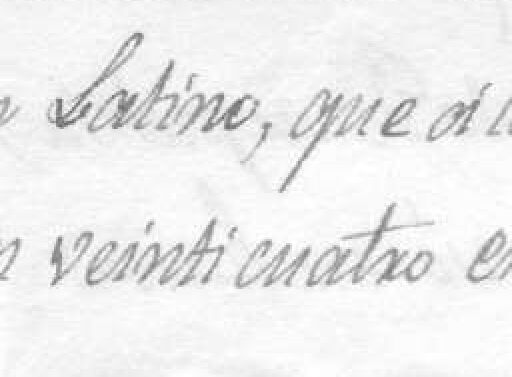 Latino, que
veinticuatro